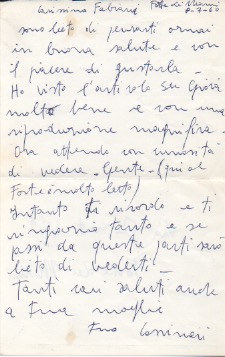 Carissimo Fabiani Forte dei Marmi
sono lieto di pensarti ormai
in buona salute e con
il piacere di gustarla -
Ho visto l'articolo su
molto bene e con una
riproduzione magnifica -
Ora attendo con curiosità
di vedere "Gente" - (qui al
Forte è molto letto)
Intanto ti ricordo e ti
ringrazio tanto e se
passi da queste parti sarò
lieto di vederti -
Tanti cari saluti anche
a tua moglie
tuo Cassinari